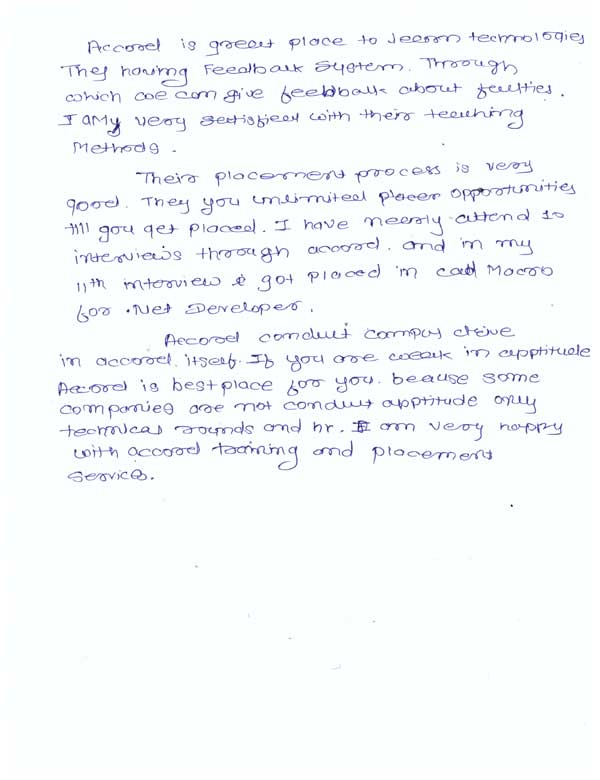 Accord is great place to learn technologies
They having Feedback system. Through
which we can give feedback about faulties.
I aMy very setisfied with their teaching
Methods.
Their placement process is very
good. They you unlimited placer opportunities
till you get placed. I have neerly attend 10
interviews through accord. and in my
11th interview I got placed in cad Macro
for .Net Developer.
Accord conduit campus drive
in accord itself. If you are weak in apptitude
Accord is best place for you. beause some
companies are not conduit apptitude only
technical rounds and hr. I am very happy
with accord training and placement
services.